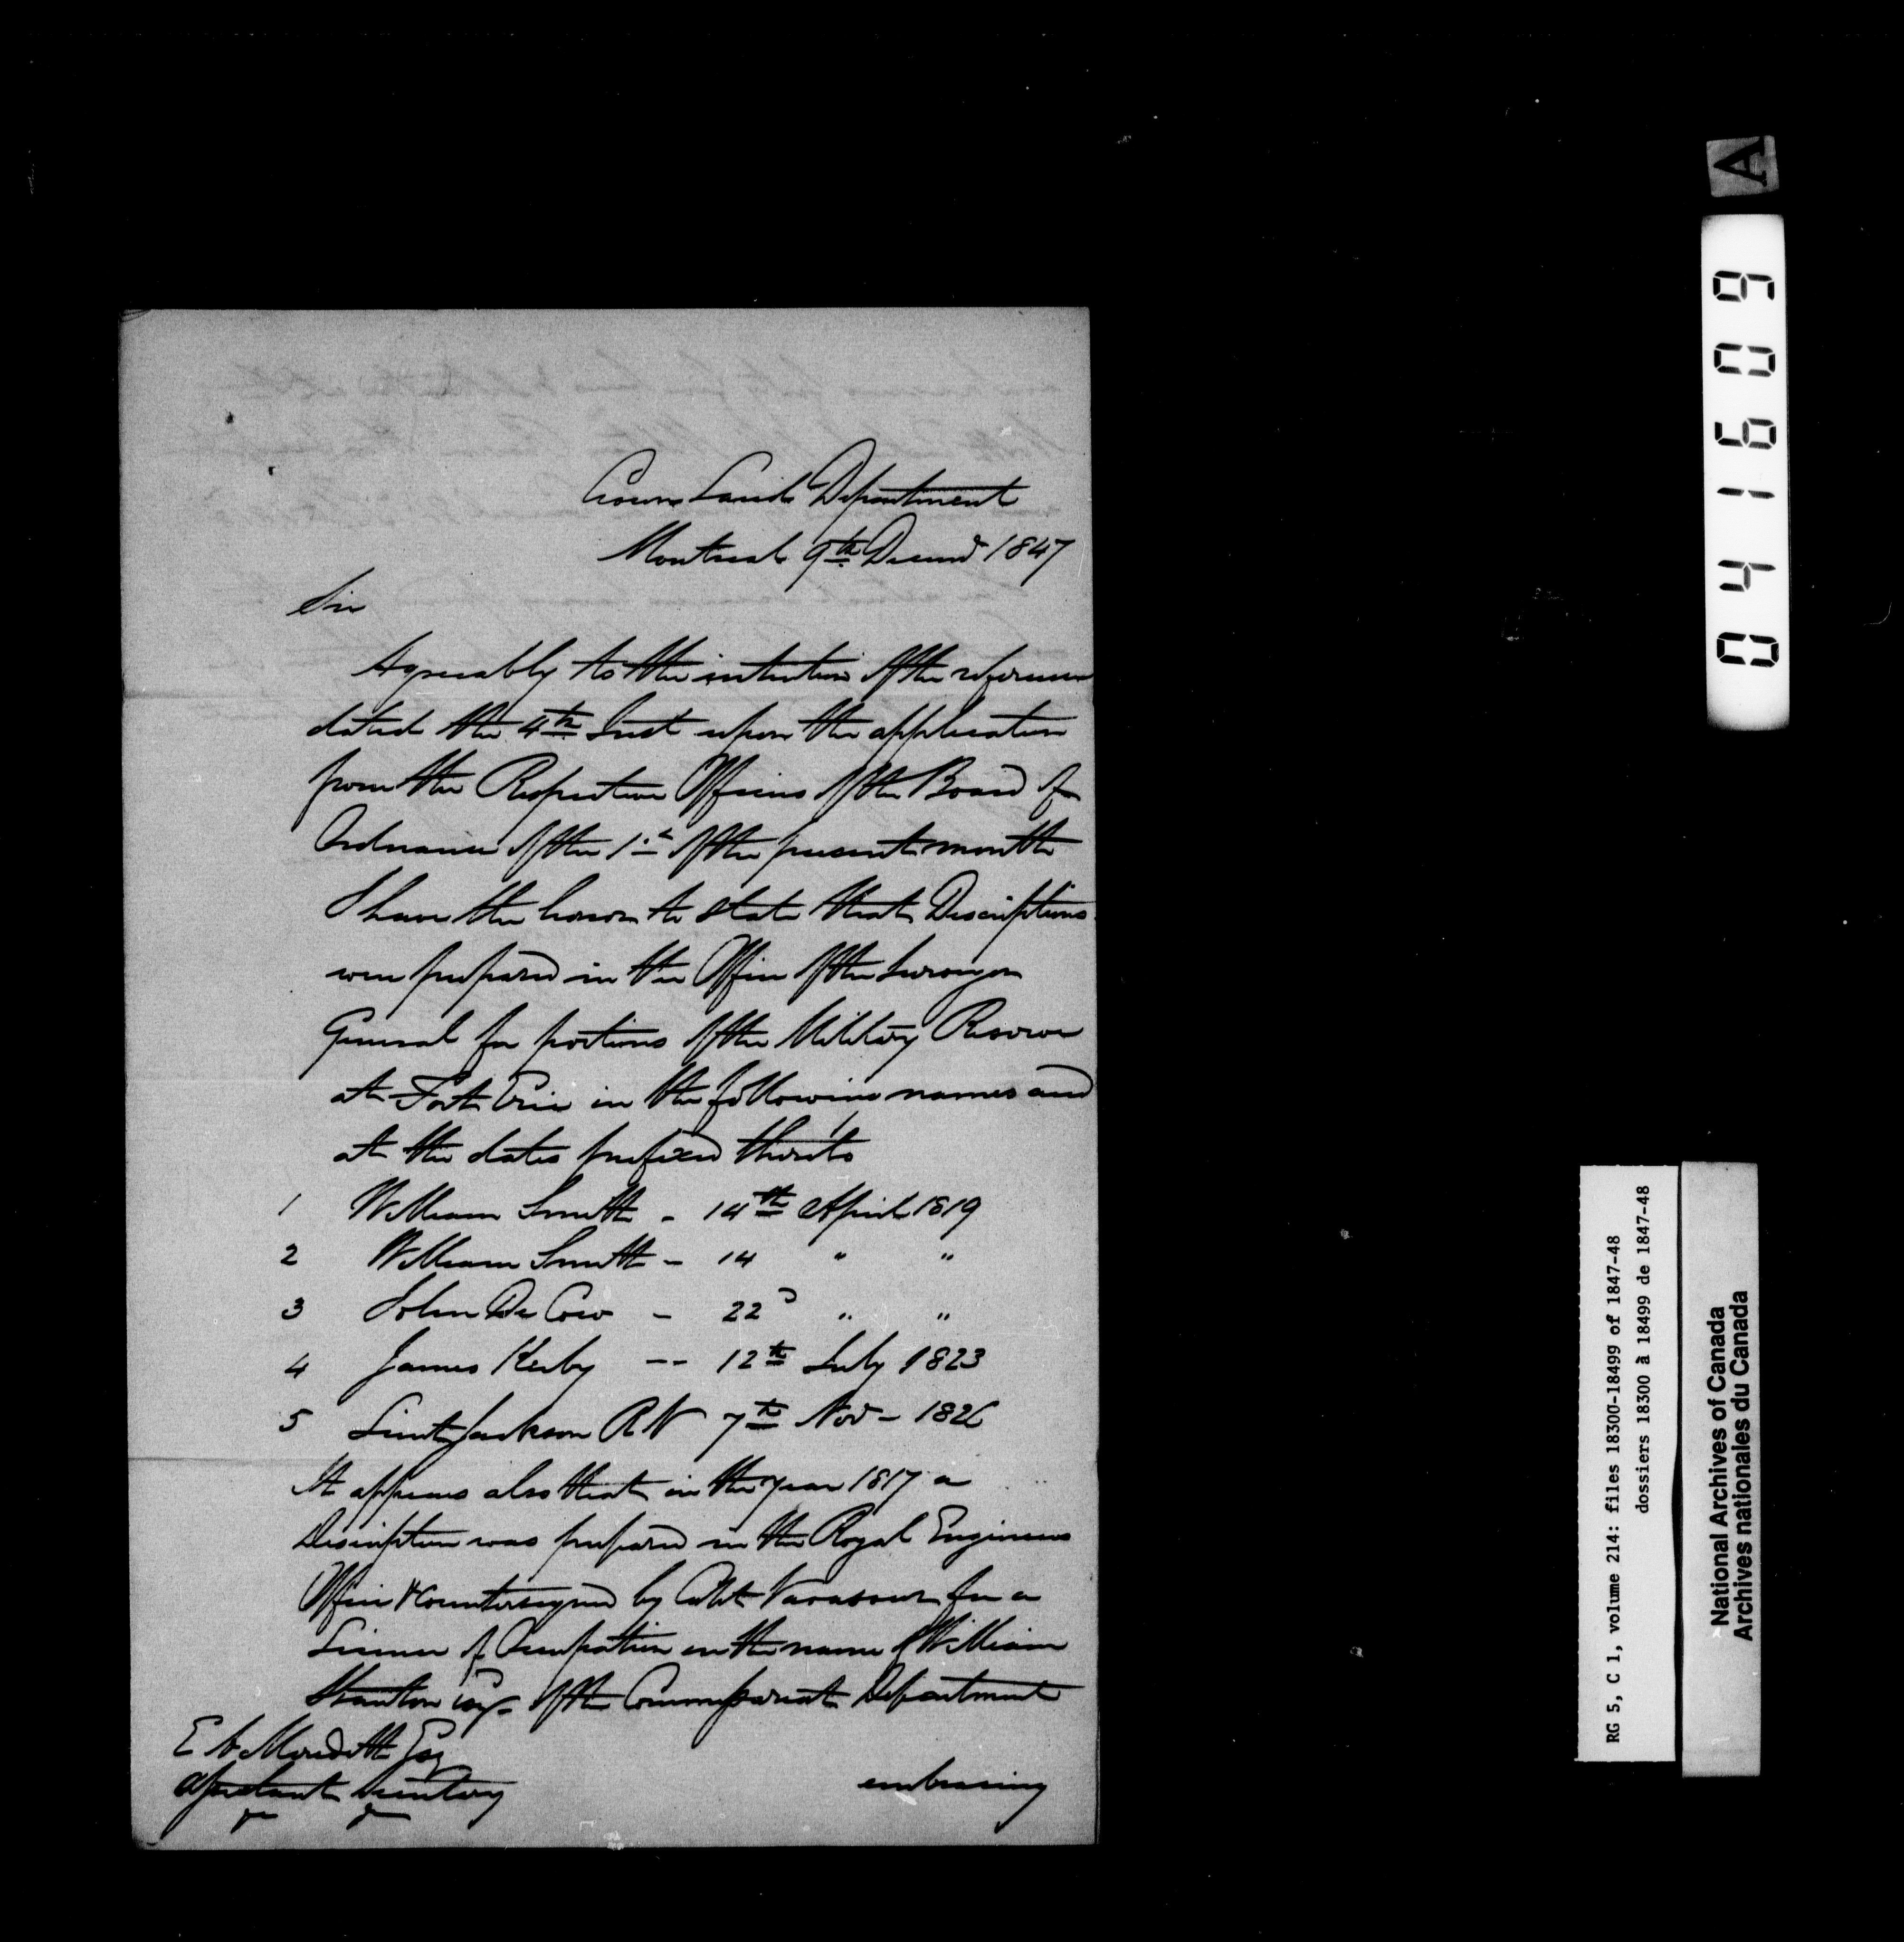 Crown Lands Department
Montreal 9th Decemr 1847
Sir
Agreeably to the intention of the reference
dated the 4th Inst upon the application
from the Respective Officers of the Board of
Ordnance of the 1st of the present month
I have the honor to state that Descriptions
were prepared in the Office of the Surveyor
General for portions of the Military Reserve
at Fort Erie in the following names and
at the dates prefixed thereto
1 William Smith - 14th April 1819
2 William Smith - 14 " "
3 John De Cow - 22d " "
4 James Kerby -- 12th July 1823
5 Lieut Jackson RN 7th Nov - 1826
It appears also that in the year 1817 a
Description was prepared in the Royal Engineers
Office & countersigned by Colol Vavasour for a
License of Occupation in the name of William
Stanton Esqr of the Commissariat Department
E A Meredith Esq
Assistant Secretary
embracing
A
041609
RG 5, C 1, volume 214: files 18300-18499 of 1847-48
dossiers 18300 à 18499 de 1847-48
National Archives of Canada
Archives nationales du Canada